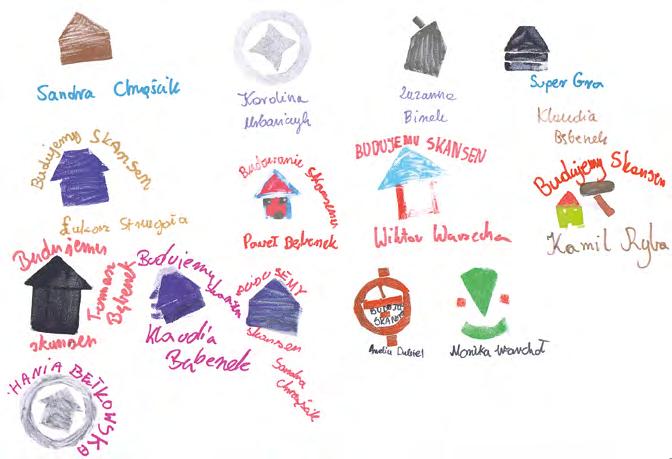 Sandra Chrąścik
Karolina
Urbańczyk
Zuzanna
Binek
Super Gra
Klaudia
Bębenek
Budujemy SKANSEN
Łukasz Strugała
Budowanie Skansenu
Paweł Bębenek
BUDUJEMY SKANSEN
Wiktor Warzecha
Budujemy Skansen
Kamil Ryba
Budujemy
skansen
Tomasz
Bębenek
Budujemy
skansen
Klaudia
Bębenek
BUDUJEMY
skansen
Sandra
Chrąścik
BUDUJE
SKANSEN
Amelia Dubiel
Monika Warchoł
HANIA BĘTKOWSKA